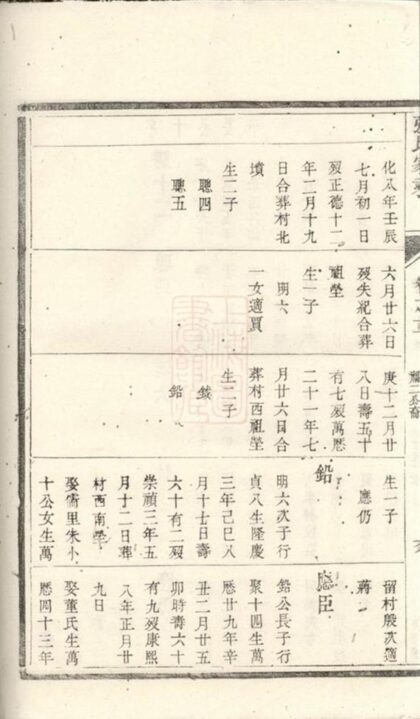 化八年壬辰
七月初一日
歿正德十二
年二月十九
日合葬村北
墳
生二子
聰四
聰五
六月廿六日
歿失紀合葬
祖塋
生一子
明六
一女適賈
庚十二月廿
八日壽五十
有七歿萬曆
二十一年七
月廿六日合
葬村西祖塋
生二子
鉛
生一子
應仍
鉛
明六次子行
貞八生隆慶
三年己巳八
月十七日壽
六十有二歿
崇禎三年五
月十二日葬
村西南塋
娶霄里朱小
十公女生萬
留村殷次適
蔣
應臣
鉛公長子行
聚十四生萬
曆廿九年辛
丑二月廿五
卯時壽六十
有九歿康熙
八年正月廿
九日
娶董氏生萬
曆四十三年